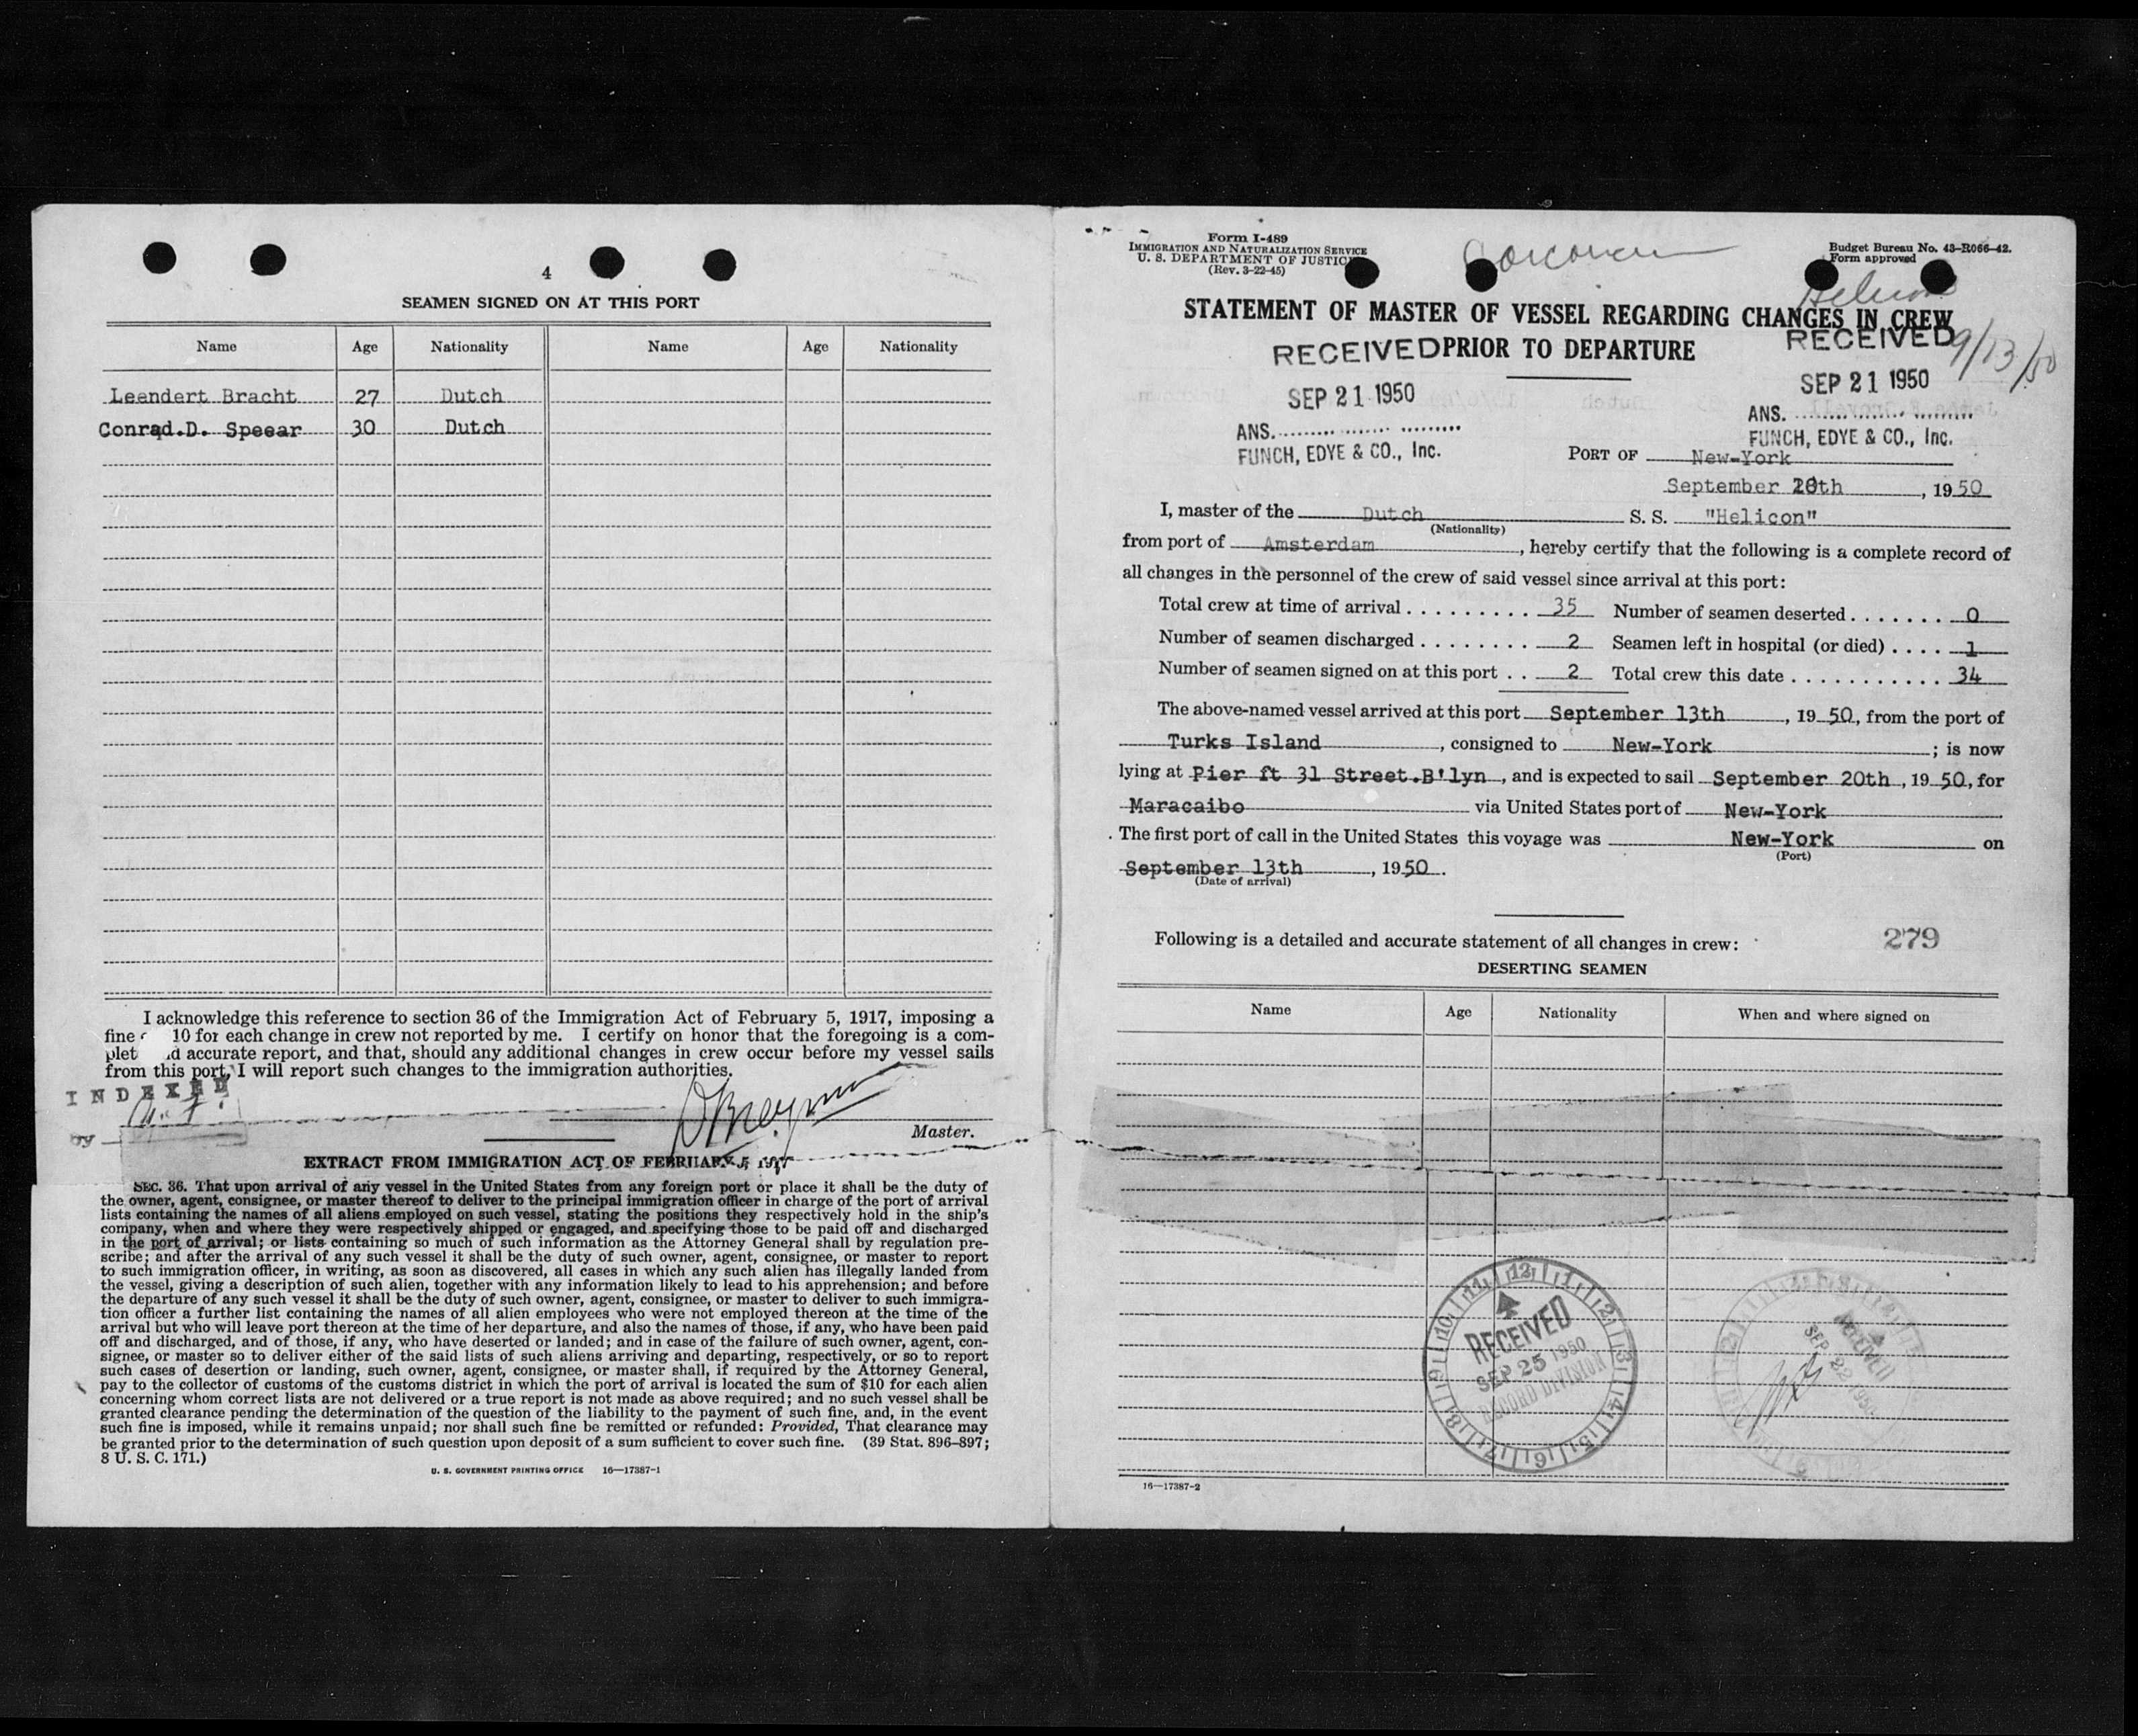 4
SEAMEN SIGNED ON AT THIS PORT
Name Age Nationality Name Age Nationality
Leendert Bracht 27 Dutch
Conrad.D. Speear 30 Dutch
I acknowledge this reference to section 36 of the Immigration Act of February 5, 1917, imposing a
fine 10 for each change in crew not reported by me. I certify on honor that the foregoing is a com-
plet d accurate report, and that, should any additional changes in crew occur before my vessel sails
from this port, I will report such changes to the immigration authorities.
INDEXED
by
Master.
EXTRACT FROM IMMIGRATION ACT OF FEBRUARY 5, 1917
SEC. 36. That upon arrival of any vessel in the United States from any foreign port or place it shall be the duty of
the owner, agent, consignee, or master thereof to deliver to the principal immigration officer in charge of the port of arrival
lists containing the names of all aliens employed on such vessel, stating the positions they respectively hold in the ship's
company, when and where they were respectively shipped or engaged, and specifying those to be paid off and discharged
in the port of arrival; or lists containing so much of such information as the Attorney General shall by regulation pre-
scribe; and after the arrival of any such vessel it shall be the duty of such owner, agent, consignee, or master to report
to such immigration officer, in writing, as soon as discovered, all cases in which any such alien has illegally landed from
the vessel, giving a description of such alien, together with any information likely to lead to his apprehension; and before
the departure of any such vessel it shall be the duty of such owner, agent, consignee, or master to deliver to such immigra-
tion officer a further list containing the names of all alien employees who were not employed thereon at the time of the
arrival but who will leave port thereon at the time of her departure, and also the names of those, if any, who have been paid
off and discharged, and of those, if any, who have deserted or landed; and in case of the failure of such owner, agent, con-
signee, or master so to deliver either of the said lists of such aliens arriving and departing, respectively, or so to report
such cases of desertion or landing, such owner, agent, consignee, or master shall, if required by the Attorney General,
pay to the collector of customs of the customs district in which the port of arrival is located the sum of $10 for each alien
concerning whom correct lists are not delivered or a true report is not made as above required; and no such vessel shall be
granted clearance pending the determination of the question of the liability to the payment of such fine, and, in the event
such fine is imposed, while it remains unpaid; nor shall such fine be remitted or refunded: Provided, That clearance may
be granted prior to the determination of such question upon deposit of a sum sufficient to cover such fine. (39 Stat. 896-897;
8 U. S. C. 171.)
U. S. GOVERNMENT PRINTING OFFICE 16—17387-1
Form I-489
IMMIGRATION AND NATURALIZATION SERVICE
U. S. DEPARTMENT OF JUSTICE
(Rev. 3-22-45)
Corcoran
Budget Bureau No. 43-R066-42.
Form approved
Helicon
9/13/50
STATEMENT OF MASTER OF VESSEL REGARDING CHANGES IN CREW
PRIOR TO DEPARTURE
RECEIVED
SEP 21 1950
ANS.
FUNCH, EDYE & CO., Inc.
RECEIVED
SEP 21 1950
ANS.
FUNCH, EDYE & CO., Inc.
PORT OF New-York
September 20th, 1950
I, master of the Dutch S. S. "Helicon"
(Nationality)
from port of Amsterdam, hereby certify that the following is a complete record of
all changes in the personnel of the crew of said vessel since arrival at this port:
Total crew at time of arrival . . . . . . . . . 35 Number of seamen deserted . . . . . . . 0
Number of seamen discharged . . . . . . . . 2 Seamen left in hospital (or died) . . . . 1
Number of seamen signed on at this port . . 2 Total crew this date . . . . . . . . . . . 34
The above-named vessel arrived at this port September 13th, 1950, from the port of
Turks Island, consigned to New-York; is now
lying at Pier ft 31 Street.B'lyn, and is expected to sail September 20th, 1950, for
Maracaibo via United States port of New-York
The first port of call in the United States this voyage was New-York on
(Port)
September 13th, 1950.
(Date of arrival)
Following is a detailed and accurate statement of all changes in crew: 279
DESERTING SEAMEN
Name Age Nationality When and where signed on
RECEIVED
SEP 25 1950
RECORD DIVISION
RECEIVED
SEP 22 1950
16—17387-2